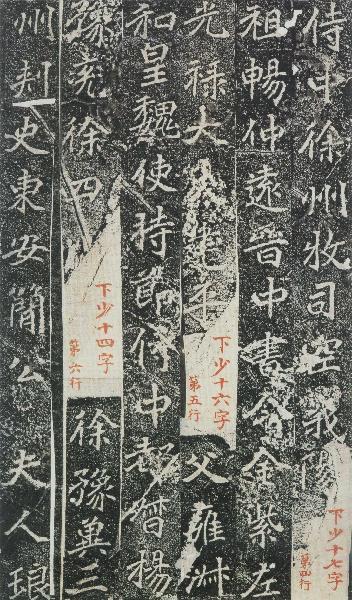 侍中徐州牧司空義陽
下少十七字
第四行
祖暢仲遠晉中書令金紫左
光祿大
下少十六字
第五行
父雍淑
和皇魏使持節侍中都督楊
豫兗徐四
下少十四字
第六行
徐豫冀三
州刾史東安簡公夫人琅